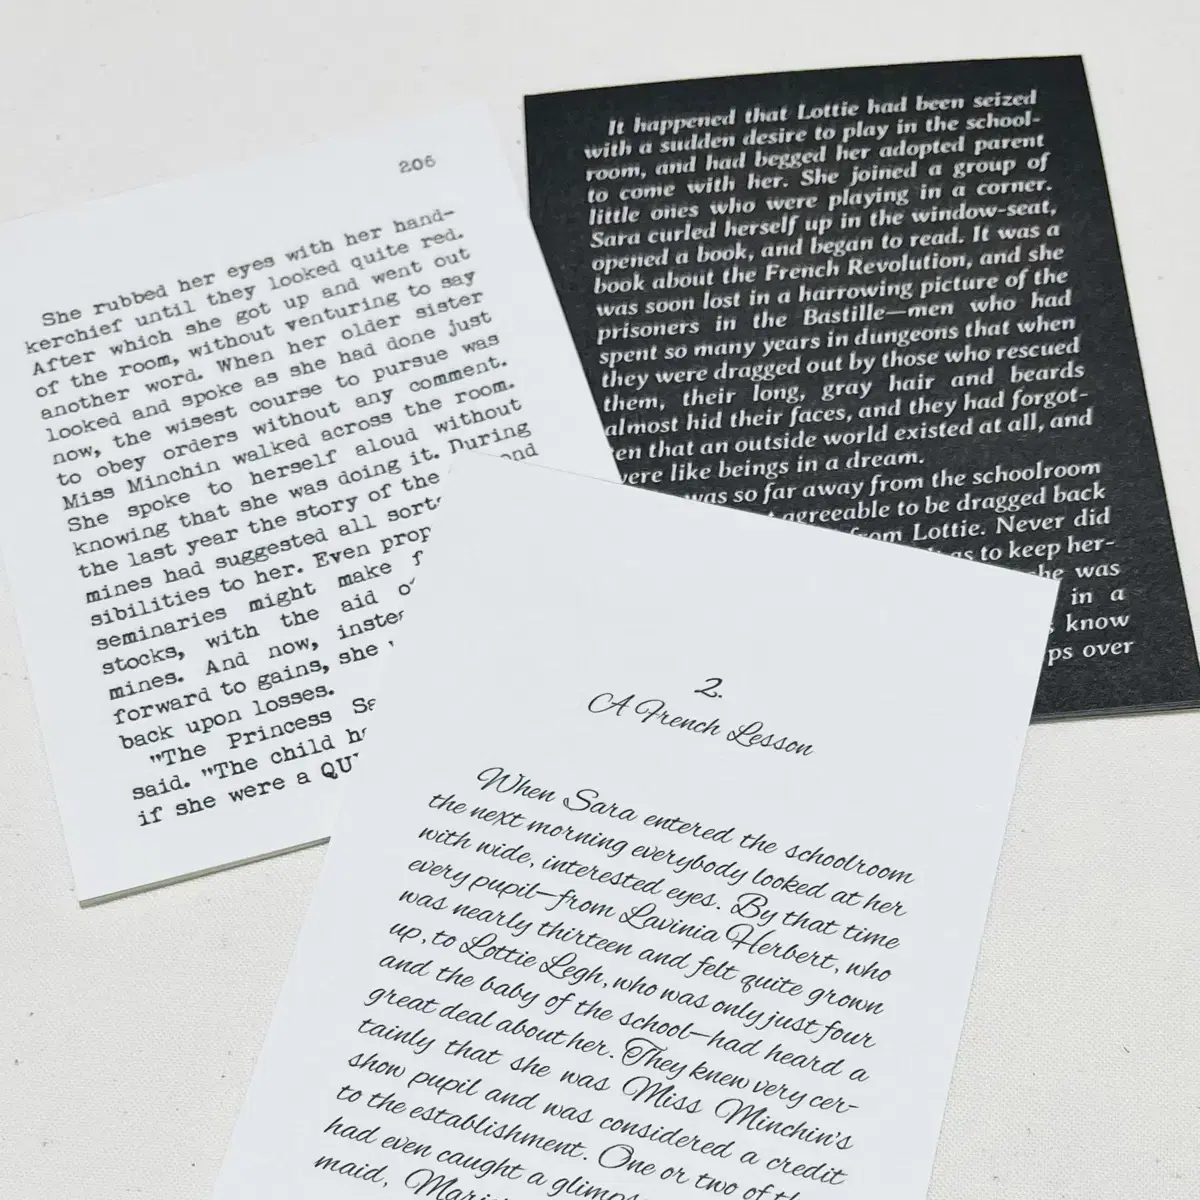 206
She rubbed her eyes with her hand-
kerchief until they looked quite red.
After which she got up and went out
of the room, without venturing to say
another word. When her older sister
looked and spoke as she had done just
now, the wisest course to pursue was
to obey orders without any comment.
Miss Minchin walked across the room.
She spoke to herself aloud without
knowing that she was doing it. During
the last year the story of the
mines had suggested all sorts
sibilities to her. Even prop
seminaries might make f
stocks, with the aid o
mines. And now, instea
forward to gains, she
back upon losses.
"The Princess Sa
said. "The child h
if she were a QU
It happened that Lottie had been seized
with a sudden desire to play in the school-
room, and had begged her adopted parent
to come with her. She joined a group of
little ones who were playing in a corner.
Sara curled herself up in the window-seat,
opened a book, and began to read. It was a
book about the French Revolution, and she
was soon lost in a harrowing picture of the
prisoners in the Bastille—men who had
spent so many years in dungeons that when
they were dragged out by those who rescued
them, their long, gray hair and beards
almost hid their faces, and they had forgot-
en that an outside world existed at all, and
were like beings in a dream.
was so far away from the schoolroom
agreeable to be dragged back
from Lottie. Never did
as to keep her-
she was
in a
know
ps over
2.
A French Lesson
When Sara entered the schoolroom
the next morning everybody looked at her
with wide, interested eyes. By that time
every pupil—from Lavinia Herbert, who
was nearly thirteen and felt quite grown
up, to Lottie Legh, who was only just four
and the baby of the school—had heard a
great deal about her. They knew very cer-
tainly that she was Miss Minchin's
show pupil and was considered a credit
to the establishment. One or two of th
had even caught a glimps
maid, Mari